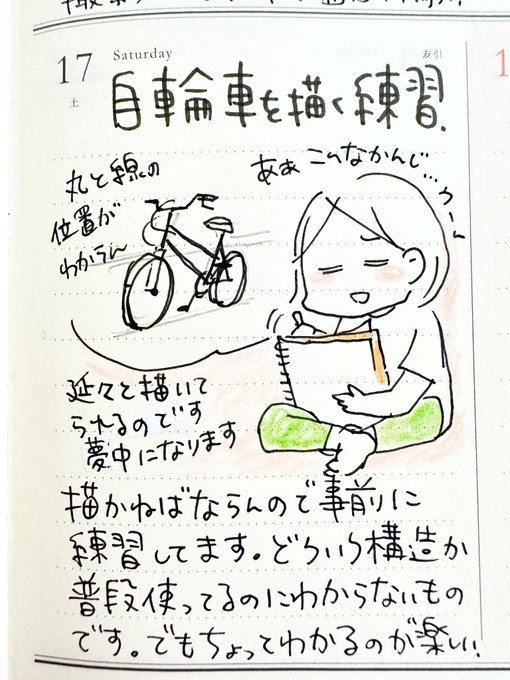 17
Saturday
土
友引
自輪車を描く練習。
丸と線の
位置が
わからん
あぁ こんなかんじ…
うーん
延々と描いて
られるのです
夢中になります
描かねばならんので事前に
練習してます。どういう構造か
普段使ってるのにわからないもの
です。でもちょってわかるのが楽しい!